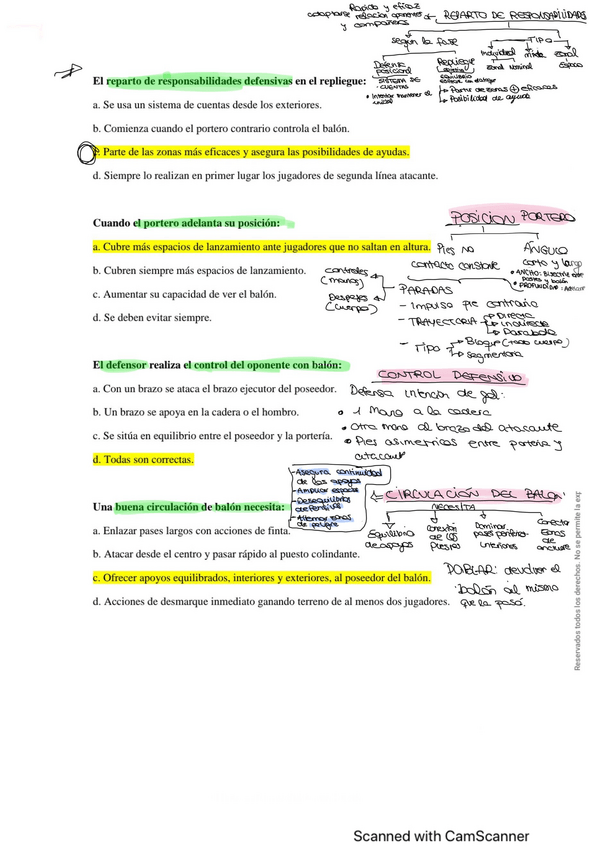 Rápido y eficaz
adaptarse relación oponentes
y compañeros
REPARTO DE RESPONSABILIDADES
según la fase
TIPO
individual
mixta
zonal
nominal
Defensa
posicional
SISTEMA DE
CUENTAS
Repliegue
equilibrio
• Partir de zonas + eficaces
• Posibilidad de ayuda
El reparto de responsabilidades defensivas en el repliegue:
a. Se usa un sistema de cuentas desde los exteriores.
b. Comienza cuando el portero contrario controla el balón.
c. Parte de las zonas más eficaces y asegura las posibilidades de ayudas.
d. Siempre lo realizan en primer lugar los jugadores de segunda línea atacante.
POSICION PORTERO
Cuando el portero adelanta su posición:
a. Cubre más espacios de lanzamiento ante jugadores que no saltan en altura.
Pies no
contacto constante
ÁNGULO
corto y largo
b. Cubren siempre más espacios de lanzamiento.
controles
(manos)
Despejes
(cuerpo)
PARADAS
c. Aumentar su capacidad de ver el balón.
- Impulso pie contrario
- TRAYECTORIA
Directa
indirecta
Parabola
d. Se deben evitar siempre.
- Tipo
Bloque (todo cuerpo)
segmentaria
El defensor realiza el control del oponente con balón:
CONTROL DEFENSIVO
a. Con un brazo se ataca el brazo ejecutor del poseedor.
Defensa intención de gol:
b. Un brazo se apoya en la cadera o el hombro.
• 1 Mano a la cadera
• Otra mano al brazo del atacante
c. Se sitúa en equilibrio entre el poseedor y la portería.
• Pies asimetricos entre portería y
atacante
d. Todas son correctas.
- Asegura continuidad
de los apoyos
- Ampliar espacios
- Desequilibrios
defensivos
- Alternar zonas
de peligro
CIRCULACIÓN DEL BALON
NECESITA
Una buena circulación de balón necesita:
a. Enlazar pases largos con acciones de finta.
Equilibrio
de apoyos
conexión
de los
puestos
Dominar
pases perifera-
interiores
Conecta
zonas
de
b. Atacar desde el centro y pasar rápido al puesto colindante.
c. Ofrecer apoyos equilibrados, interiores y exteriores, al poseedor del balón.
DOBLAR: devolver el
balón al mismo
que la pasó.
d. Acciones de desmarque inmediato ganando terreno de al menos dos jugadores.
Reservados todos los derechos. No se permite la exp
Scanned with CamScanner